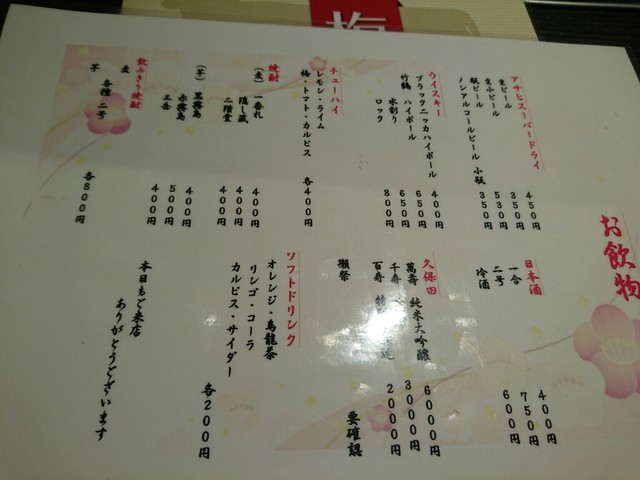 梅
お飲物
アサヒスーパードライ
生ビール 450円
生小ビール 350円
瓶ビール 530円
ノンアルコールビール 小瓶 350円
ウイスキー
ブラックニッカハイボール 400円
竹鶴 ハイボール 650円
水割り 650円
ロック 800円
チューハイ
レモン・ライム
梅・トマト・カルピス 各400円
焼酎
(麦) 一番札 400円
隠し蔵 400円
二階堂 400円
(芋) 黒霧島 400円
赤霧島 500円
三岳 400円
飲みきり焼酎
麦
芋 各種 二号 各800円
日本酒
一合 400円
二号 750円
冷酒 600円
久保田
萬壽 純米大吟醸 6000円
千寿 3000円
百寿 2000円
獺祭 要確認
ソフトドリンク
オレンジ・烏龍茶
リンゴ・コーラ
カルピス・サイダー 各200円
本日もご来店
ありがとうございます